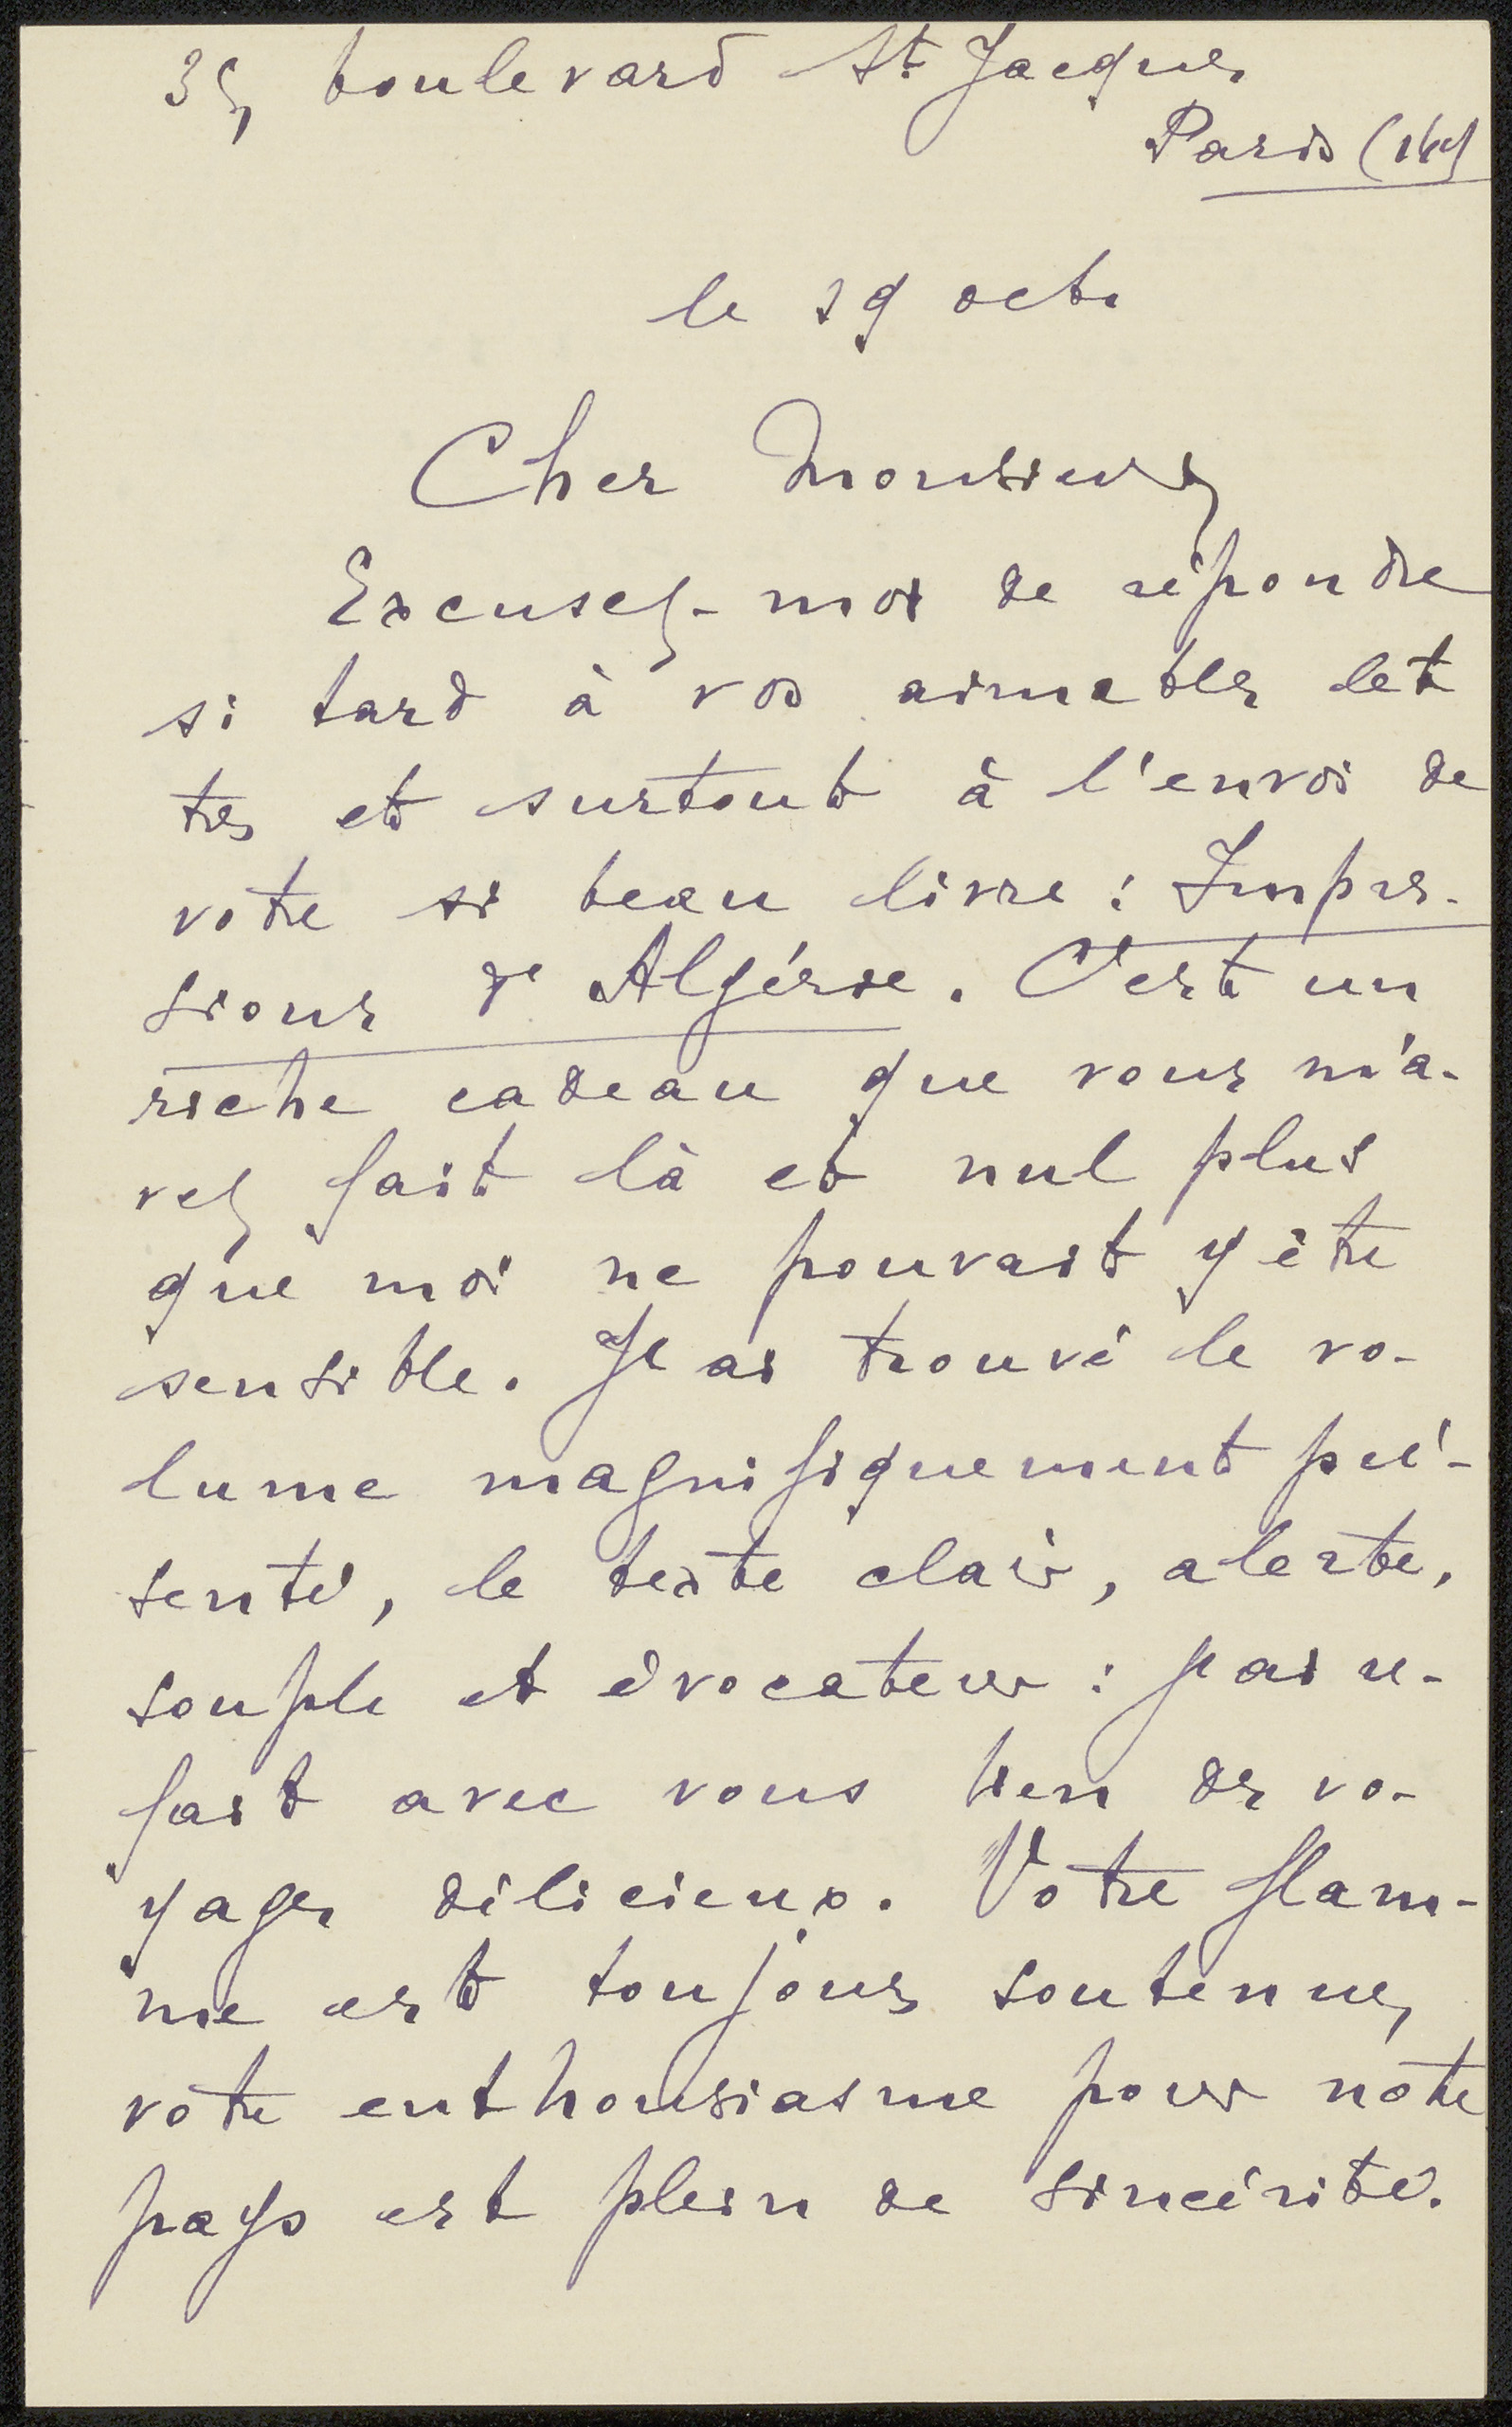 35, boulevard St Jacques
Paris (14e)
le 29 octe
Cher Monsieur,
Excusez-moi de répondre
si tard à vos aimables let
tres et surtout à l'envoi de
votre si beau livre : Impres-
sions d'Algérie. C'est un
riche cadeau que vous m'a-
vez fait là et nul plus
que moi ne pouvait y être
sensible. J'ai trouvé le vo-
lume magnifiquement pré-
senté, le texte clair, alerte,
souple et évocateur : j'ai re-
fait avec vous bien des vo-
yages délicieux. Votre flam-
me est toujours soutenue,
votre enthousiasme pour notre
pays est plein de sincérité.